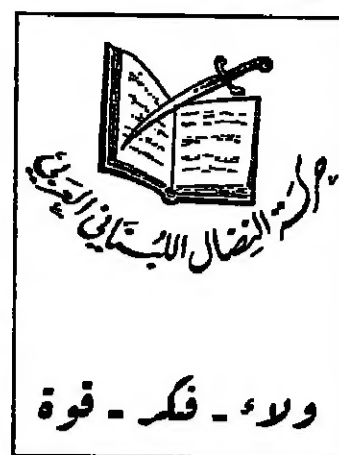 حركة النضال اللبناني العربي
ولاء - فكر - قوة